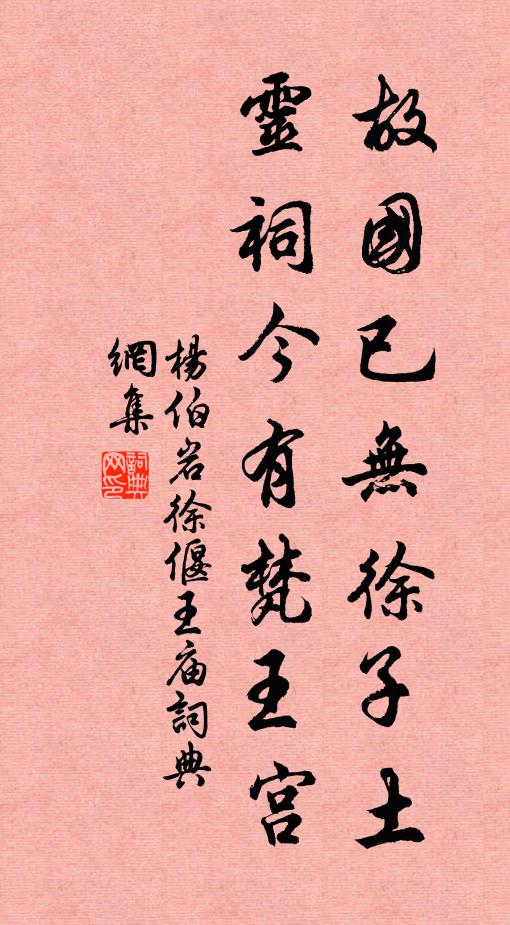 故國已無徐子土
靈祠今有梵王宮
楊伯岩徐偃王庙詞典
網集
詞典
网印